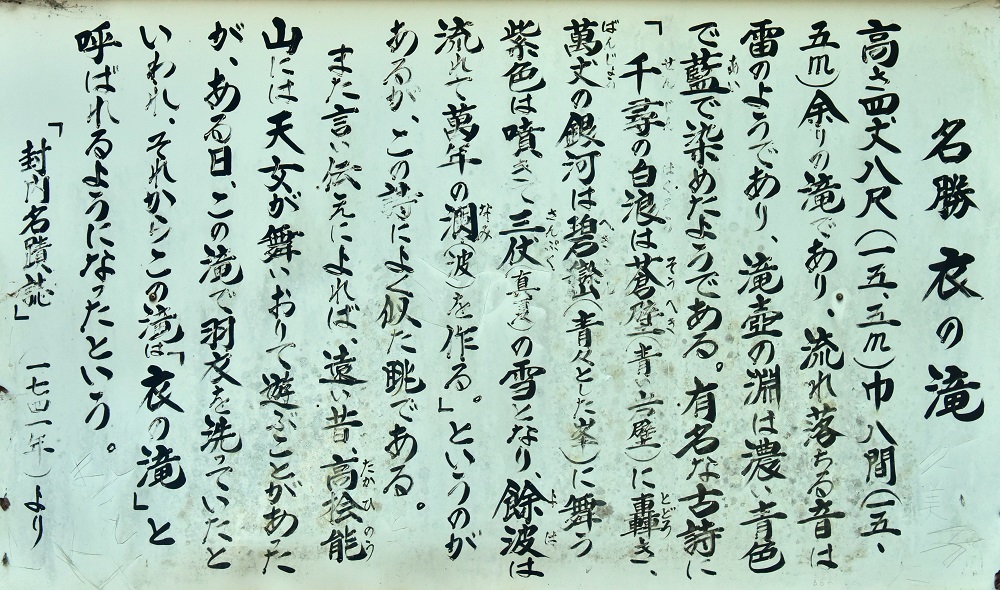 名勝 衣の滝
高さ四丈八尺(一五、三m)巾八間(一五、
五m)余りの滝であり、流れ落ちる音は
雷のようであり、滝壺の淵は濃い青色
で藍で染めたようである。有名な古詩に
「千尋の白浪は蒼壁(青い岩壁)に轟き、
萬丈の銀河は碧巒(青々とした峯)に舞う
紫色は噴きて三伏(真夏)の雪となり、餘波は
流れて萬年の澗(波)を作る。」というのが
あるが、この詩によく似た眺である。
また言い伝えによれば、遠い昔、高桧能
山には天女が舞いおりて遊ぶことがあった
が、ある日、この滝で羽衣を洗っていたと
いわれ、それからこの滝は「衣の滝」と
呼ばれるようになったという。
「封内名蹟誌」 一七四一年)より